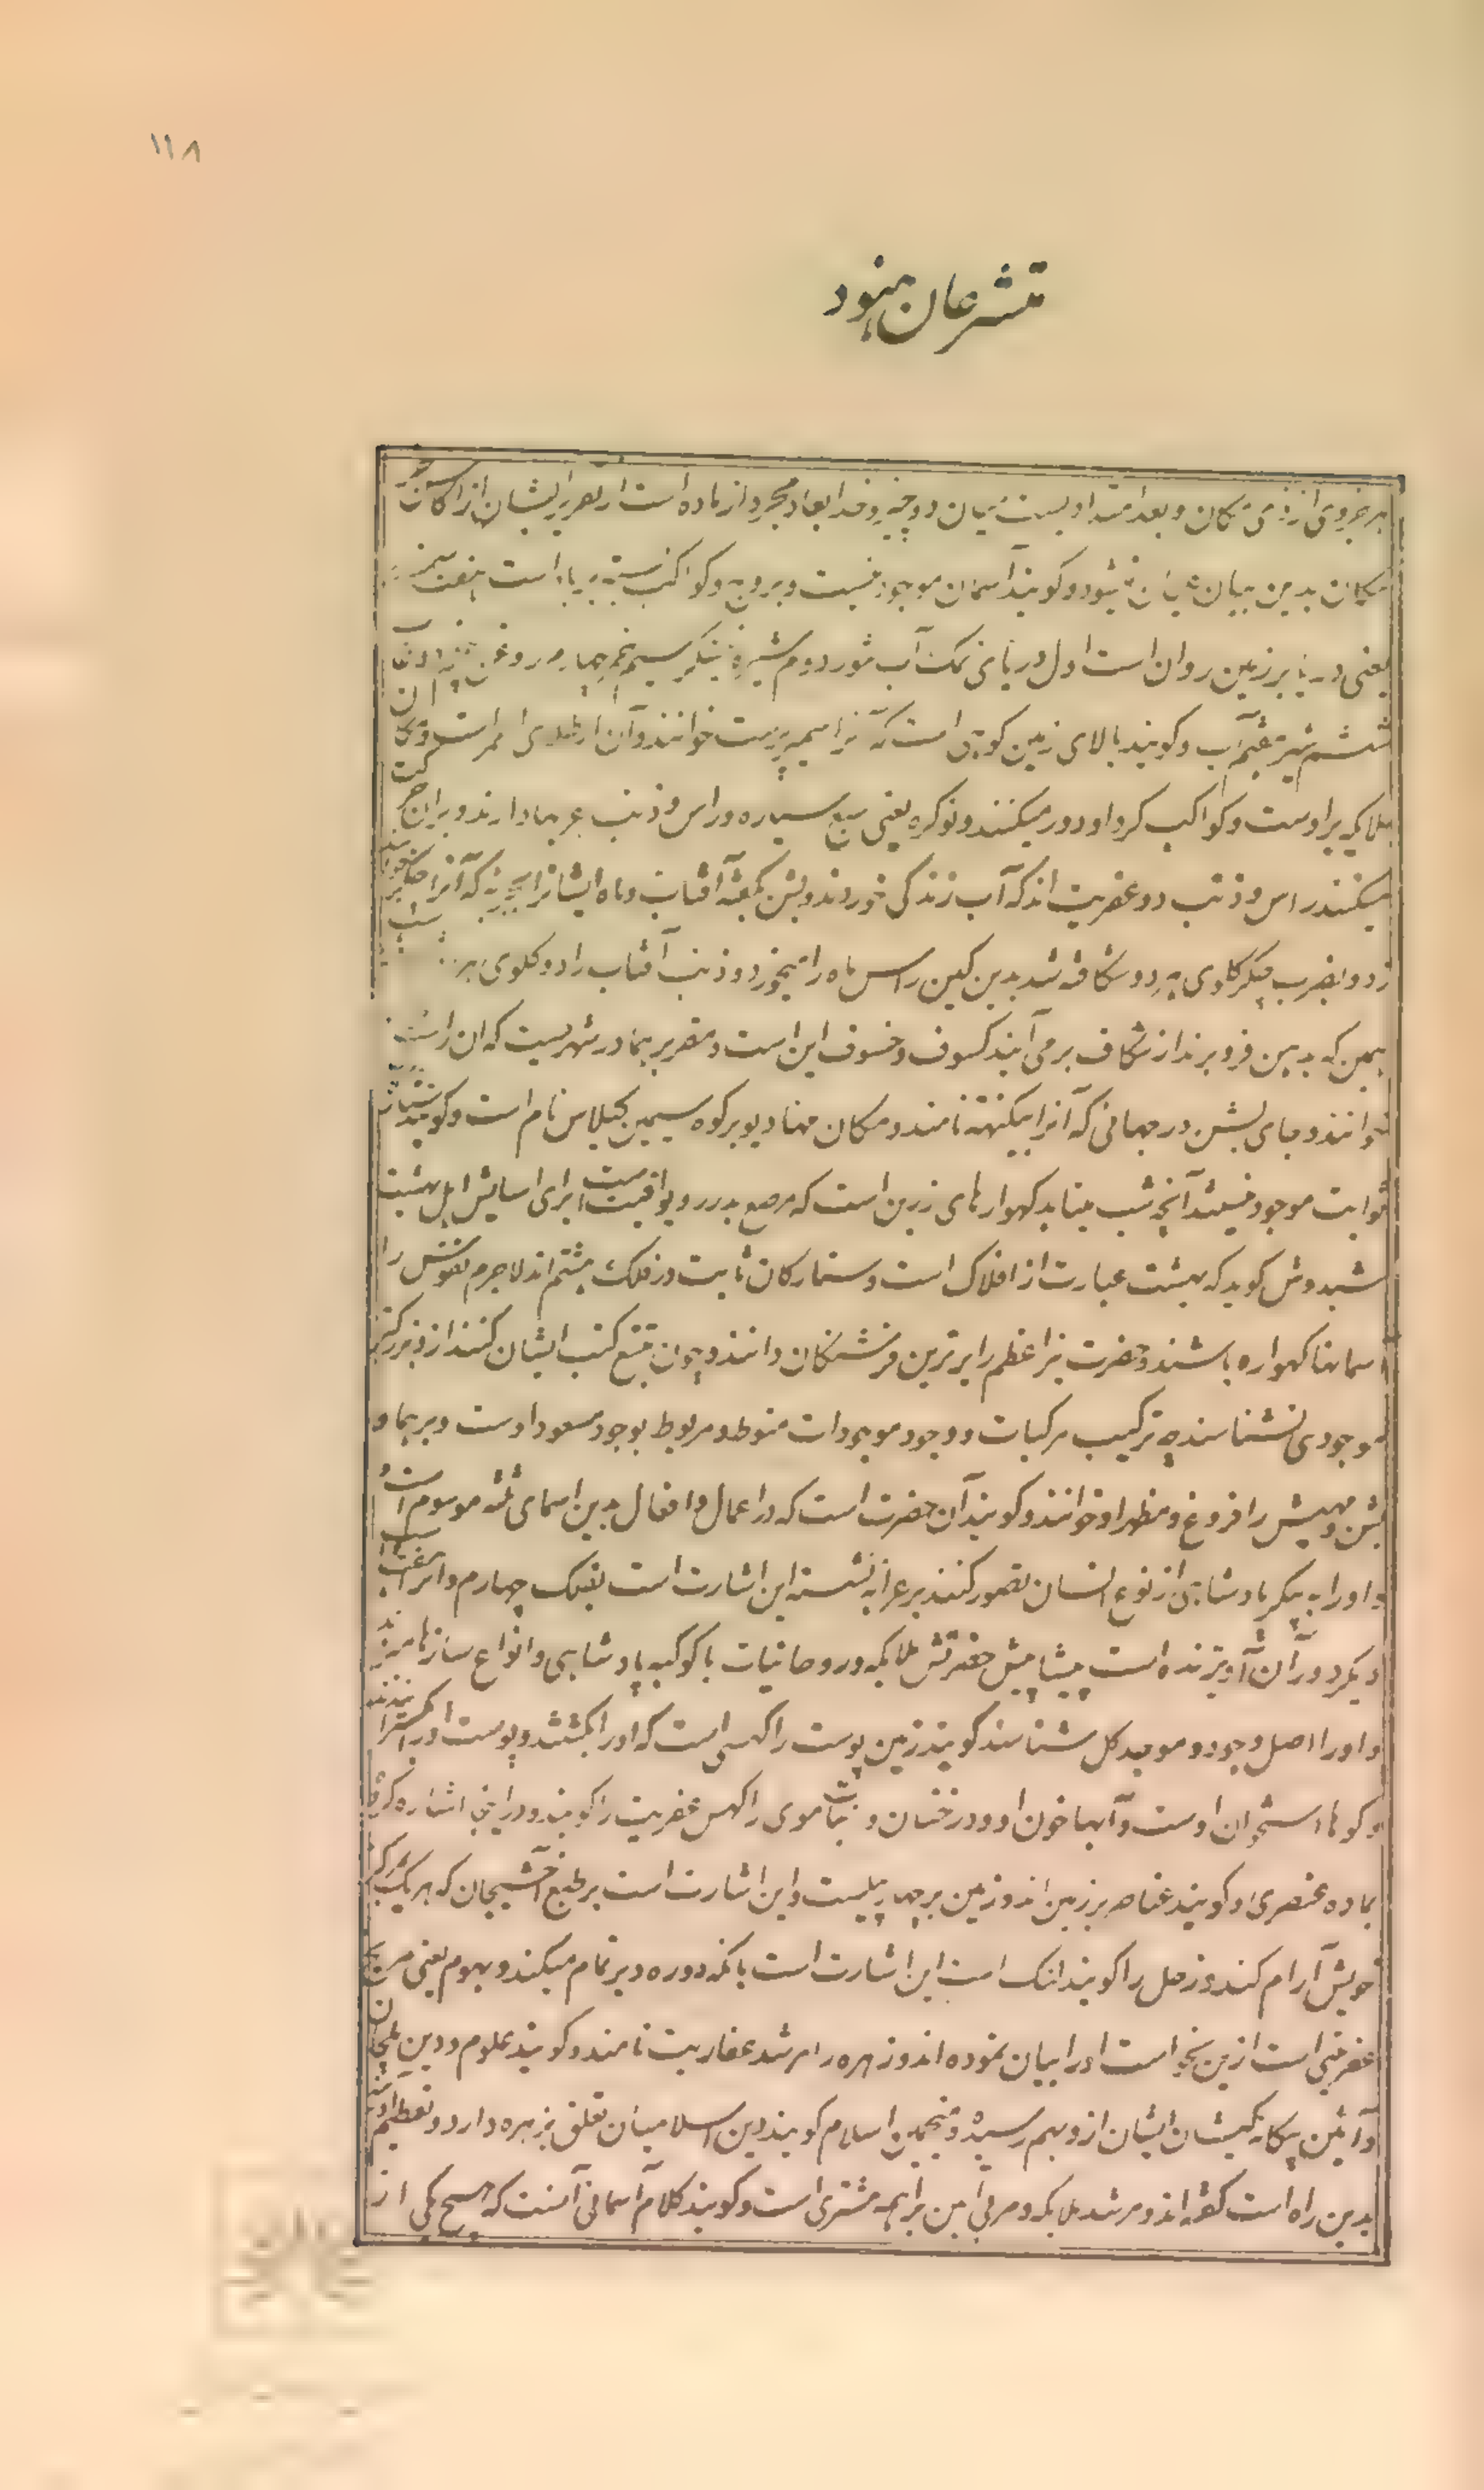 ۱۱۸
متشرعان هنود
هر جزوی از ذی مکان و بعد امتداد یست میان دو چیز و خدا ابعاد مجرد از ماده است از تقریر ایشان از اکاس
مکان بدین بیان عیان میشود و کویند آسمان موجود نیست و بروج و کواکب بسته بر باد است هفت سمندر
یعنی دریا بر زمین روان است اول دریای نمک آب شور دوم شیره نیشکر سیم خمر چهارم روغن پنجم
ششم شیر هفتم آب و کویند بالای زمین کوهی است که آنرا سمیر پربت خوانند و آن از طلای احمر است
ملایکه بر اوست و کواکب کرد او دور میکنند و نوکره یعنی سبع سیاره و راس و ذنب عربها دارند و بر آن حرکت
میکنند راس و ذنب دو عفریت اند که آب زندکی خوردند و بشن بکفته آفتاب و ماه ایشانرا که آنرا چکر
زد و بضرب چکر کلوی هر دو شکافته شد بدین کین راس ماه را میخورد و ذنب آفتاب را و کلوی هر
همین که بدین فرو برند از شکاف بر می آیند کسوف و خسوف این است و مقر برهما در شهریست که ان را
خوانند و جای بشن در جهانی که آنرا بیکنته نامند و مکان مهادیو بر کوه سیمین کیلاس نام است و کویند
ثوابت موجود نیستند آنچه شب مینماید کهوارهای زرین است که مرصع بدرر و یواقیت است برای اسایش اهل بهشت
شیدوش کوید که بهشت عبارت از افلاک است و ستارکان ثابت در فلک هشتم اند لاجرم نفوس را
آسمانها کهواره باشند و حضرت نیر اعظم را برترین فرشتکان دانند و چون تتبع کتب ایشان کنند ازو بزرکتر
موجودی نشناسند چه ترکیب مرکبات و وجود موجودات منوط و مربوط بوجود مسعود اوست و برهما و
بشن و مهیش را فروغ و مظهر او خوانند و کویند آن حضرت است که در اعمال و افعال بدین اسمای ثلثه موسوم است و
و او را به پیکر پادشاهی از نوع انسان تصور کنند بر عرابه نشسته این اشارت است بفلک چهارم و
دیکر دوران آویزنده است پیشاپیش حضرتش ملایکه و روحانیات با کوکبه پادشاهی و انواع سازها میروند
و او را اصل وجود و موجد کل شناسند کویند زمین پوست راکهسی است که او را بکشتند و پوست او را کسترانیدند
و کوهها استخوان اوست و آبها خون او و درختان و نباتات موی راکهس عفریت را کویند و در اینجا اشاره کرده
بماده عنصری و کویند عناصر بر زمین اند و زمین بر چهار پیلست و این اشارت است بر طبع آخشیجان که هر یک بمرکز
خویش آرام کند و زحل را کویند لنک است این اشارت است بانکه دوره دیر تمام میکند و بهوم یعنی مریخ
عفریتی است ازین نحو است او را بیان نموده اند و زهره را مرشد عفاریت نامند و کویند علوم و دین ملیچان
و آئین بیکانه کیشان ایشان ازو بهم رسیده و منجمین اسلام کویند دین اسلامیان تعلق بزهره دارد و تعظیم آدینه
بدین راه است کفته اند و مرشد ملایکه و مربی این براهمه مشتری است و کویند کلام آسمانی آنست که هیچ یکی از